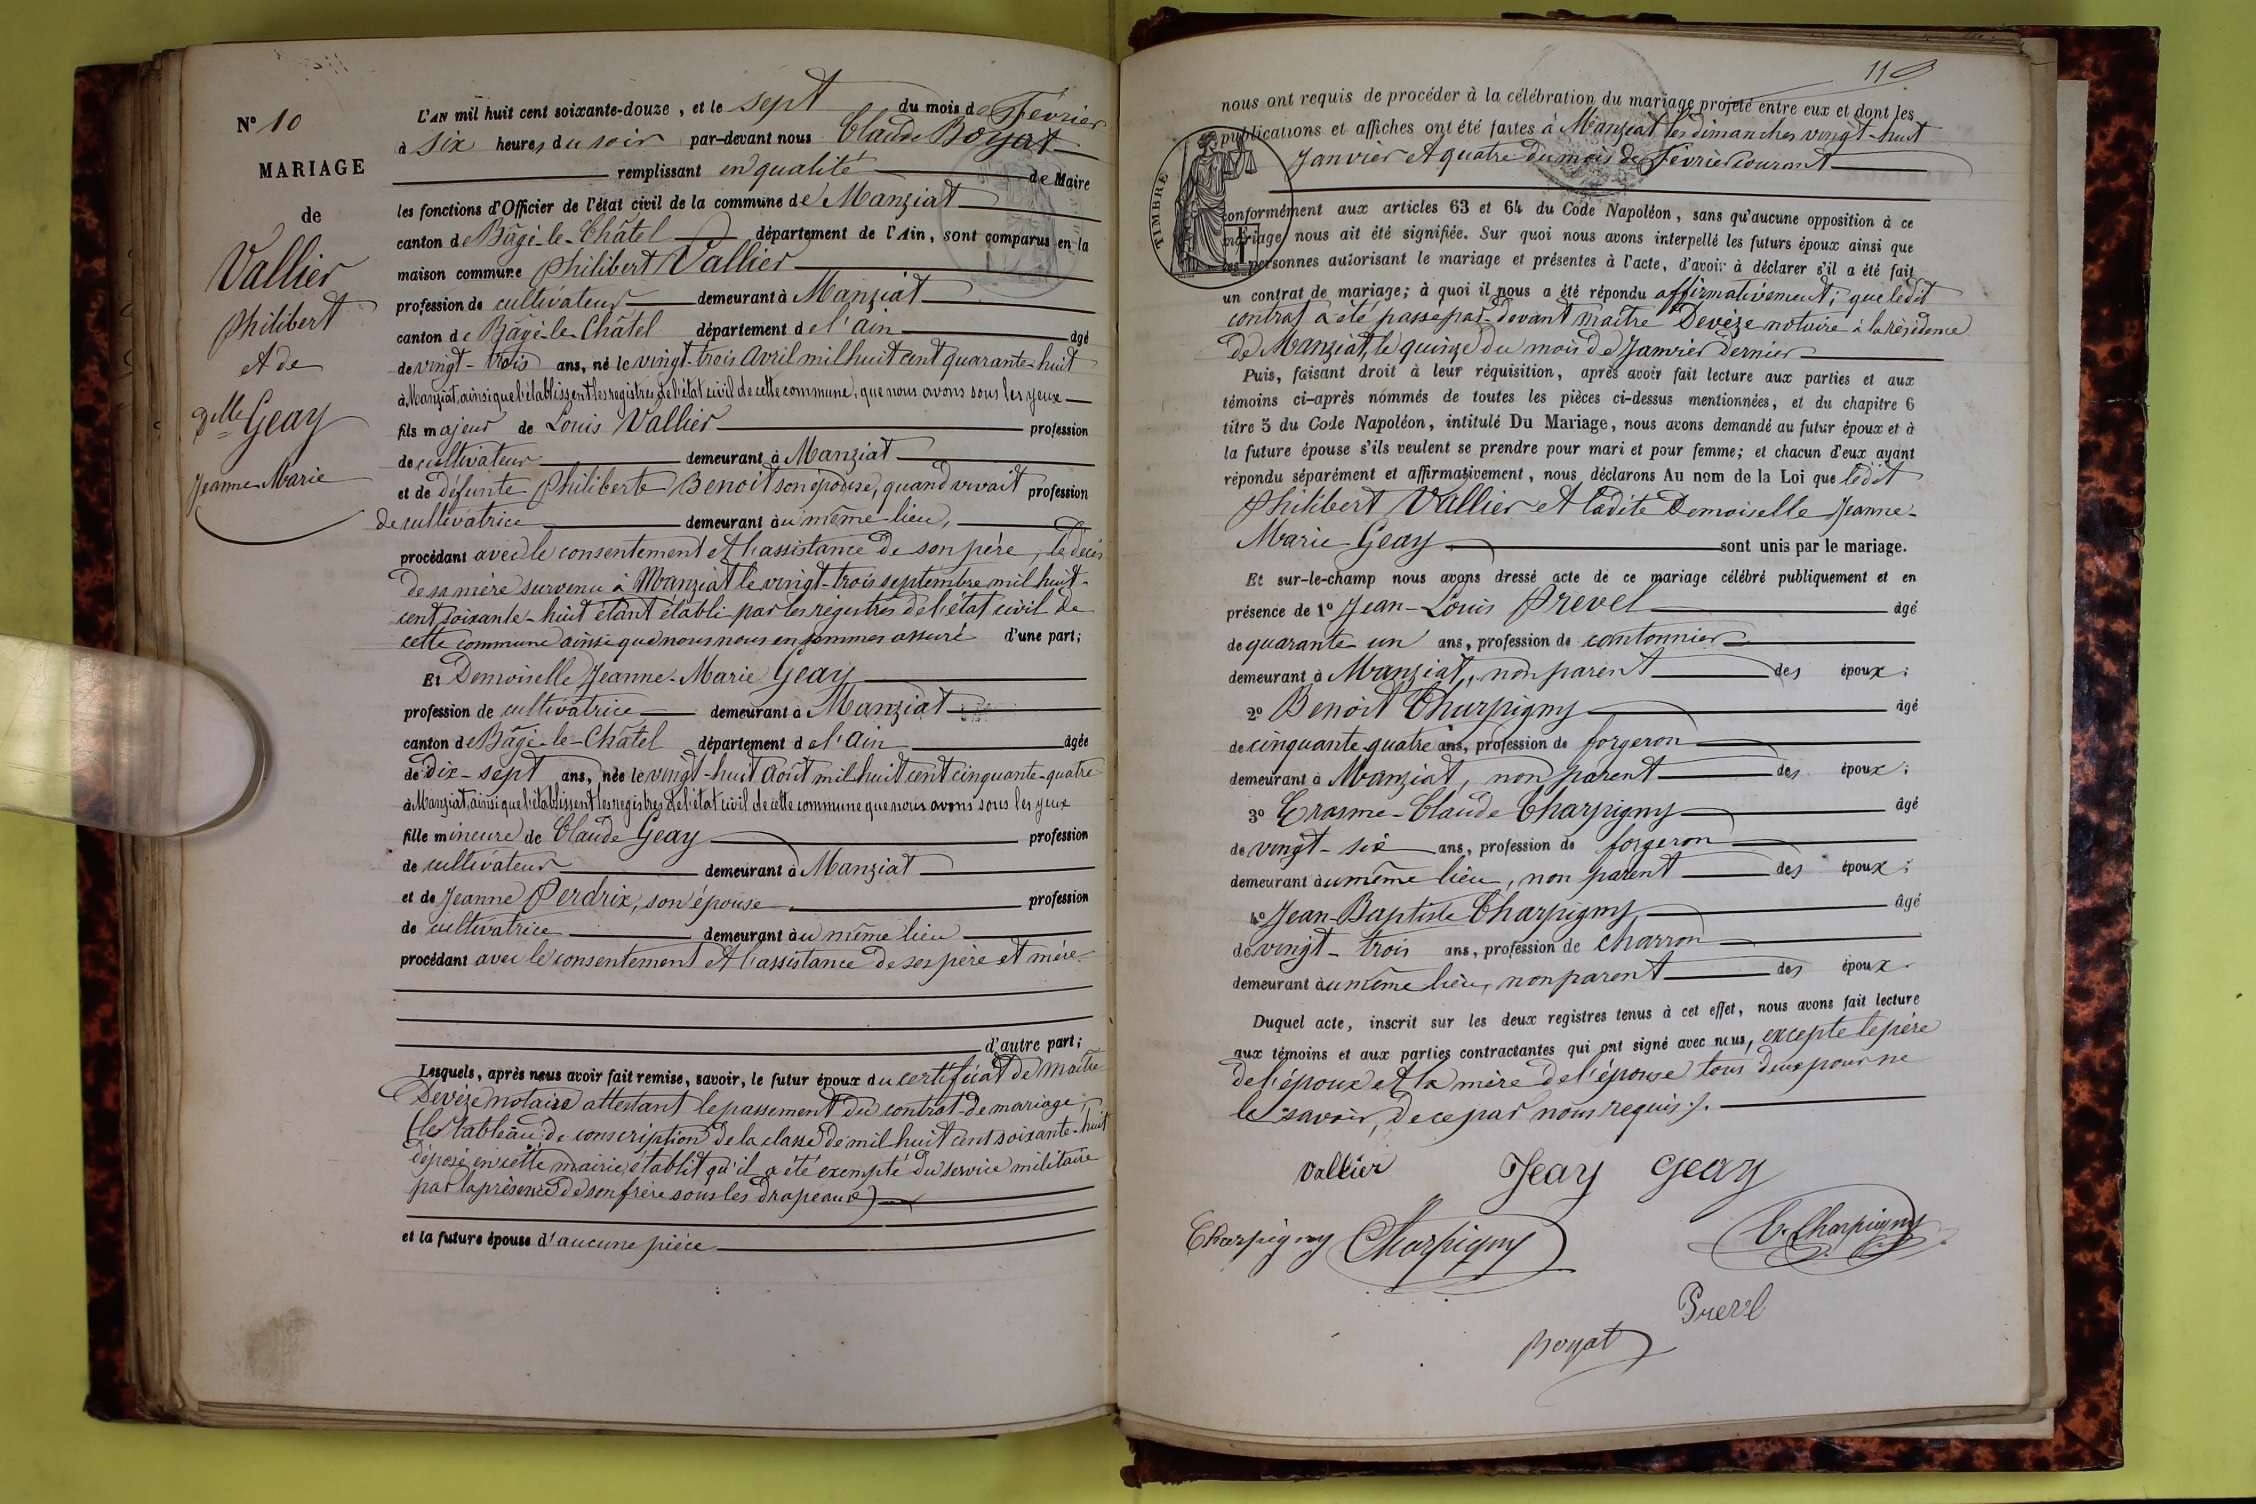 N° 10
MARIAGE
de
Vallier
Philibert
et de
Dlle Geay
Jeanne-Marie
L'AN mil huit cent soixante-douze, et le sept du mois de Février
à six heures du soir par-devant nous Claude Boyat
remplissant en qualité de Maire
les fonctions d'Officier de l'état civil de la commune de Manziat
canton de Bâgé-le-Châtel département de l'Ain, sont comparus en la
maison commune Philibert Vallier
profession de cultivateur demeurant à Manziat
canton de Bâgé-le-Châtel département de l'ain âgé
de vingt-trois ans, né le vingt-trois Avril mil huit cent quarante-huit
à Manziat, ainsi que l'établissent les registres de l'état civil de cette commune, que nous avons sous les yeux
fils majeur de Louis Vallier profession
de cultivateur demeurant à Manziat
et de défunte Philiberte Benoit son épouse, quand vivait profession
de cultivatrice demeurant au même lieu,
procédant avec le consentement et l'assistance de son père, le décès
de sa mère survenu à Manziat le vingt-trois septembre mil huit-
cent soixante-huit étant établi par les registres de l'état civil de
cette commune ainsi que nous nous en sommes assuré d'une part;
Et Demoiselle Jeanne-Marie Geay
profession de cultivatrice demeurant à Manziat
canton de Bâgé-le-Châtel département de l'ain âgée
de dix-sept ans, née le vingt-huit Août mil huit cent cinquante-quatre
à Manziat, ainsi que l'établissent les registres de l'état civil de cette commune que nous avons sous les yeux
fille mineure de Claude Geay profession
de cultivateur demeurant à Manziat
et de Jeanne Perdrix, son épouse profession
de cultivatrice demeurant au même lieu
procédant avec le consentement et l'assistance de ses père et mère
d'autre part;
Lesquels, après nous avoir fait remise, savoir, le futur époux du certificat de Maître
Devèze notaire attestant le passement du contrat de mariage
(les tableau de conscription de la classe de mil huit cent soixante-huit
déposé en cette mairie établit qu'il a été exempté du service militaire
par la présence de son frère sous les drapeaux)
et la future épouse d'aucune pièce
110
nous ont requis de procéder à la célébration du mariage projeté entre eux et dont les
publications et affiches ont été faites à Manziat les dimanches vingt-huit
Janvier et quatre du mois de Février courant
TIMBRE
conformément aux articles 63 et 64 du Code Napoléon, sans qu'aucune opposition à ce
mariage nous ait été signifiée. Sur quoi nous avons interpellé les futurs époux ainsi que
les personnes autorisant le mariage et présentes à l'acte, d'avoir à déclarer s'il a été fait
un contrat de mariage; à quoi il nous a été répondu affirmativement; que ledit
contrat a été passé par-devant maître Devèze notaire à la résidence
de Manziat, le quinze du mois de Janvier dernier
Puis, faisant droit à leur réquisition, après avoir fait lecture aux parties et aux
témoins ci-après nommés de toutes les pièces ci-dessus mentionnées, et du chapitre 6
titre 5 du Code Napoléon, intitulé Du Mariage, nous avons demandé au futur époux et à
la future épouse s'ils veulent se prendre pour mari et pour femme; et chacun d'eux ayant
répondu séparément et affirmativement, nous déclarons Au nom de la Loi que ledit
Philibert Vallier et ladite Demoiselle Jeanne-
Marie Geay sont unis par le mariage.
Et sur-le-champ nous avons dressé acte de ce mariage célébré publiquement et en
présence de 1° Jean-Louis Prevel âgé
de quarante-un ans, profession de cantonnier
demeurant à Manziat, non parent des époux;
2° Benoit Charpigny âgé
de cinquante-quatre ans, profession de forgeron
demeurant à Manziat, non parent des époux;
3° Erasme-Claude Charpigny âgé
de vingt-six ans, profession de forgeron
demeurant au même lieu, non parent des époux;
4° Jean-Baptiste Charpigny âgé
de vingt-trois ans, profession de charron
demeurant au même lieu, non parent des époux.
Duquel acte, inscrit sur les deux registres tenus à cet effet, nous avons fait lecture
aux témoins et aux parties contractantes qui ont signé avec nous, excepte le père
de l'époux et la mère de l'épouse tous deux pour ne
le savoir, de ce par nous requis ./.
Vallier Jeay Geay
Charpigny Charpigny C. Charpigny
Prevel
Boyat